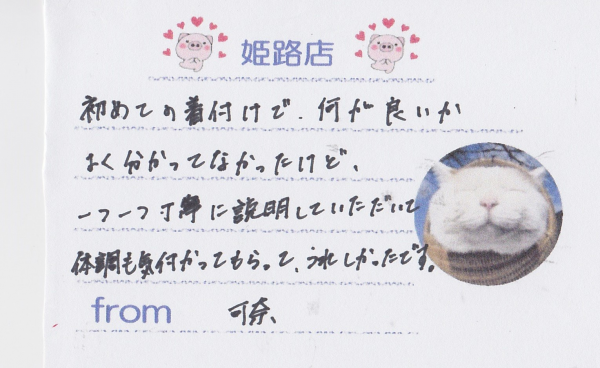 姫路店
初めての着付けで、何が良いか
よく分かってなかったけど、
一つ一つ丁寧に説明していただいて
体調も気付かってもらって、うれしかったです。
from 可奈、